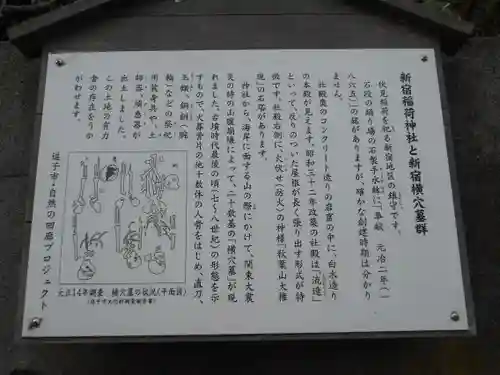 新宿稲荷神社と新宿横穴墓群
伏見稲荷を祀る新宿地区の鎮守です。
石段の踊り場の石製手水鉢に「奉献　元治二年（一
八六五）」の銘がありますが、確かな創建時期は分かり
ません。
社殿奥のコンクリート造りの岩窟の中に、白木造り
の本殿が見えます。昭和三十二年改築の社殿は「流造」
といって、反りのついた屋根が長く張り出す形式が特
徴です。社殿右側に、火伏せ（防火）の神様「秋葉山大権
現」の石塔があります。
神社から、海岸に面する山の際にかけて、関東大震
災の時の山腹崩壊によって、二十数基の「横穴墓」が現
れました。古墳時代最後の頃（七〜八世紀）の形態を示
すもので、火葬骨片の他十数体の人骨をはじめ、直刀、
玉類、銅釧（腕
輪）などの祭祀
用装身具や、土
師器、須恵器が
出土しました。
この土地の有力
者の存在をうか
がわせます。
大正14年調査　横穴墓の状況（平面図）
逗子市・自然の回廊プロジェクト